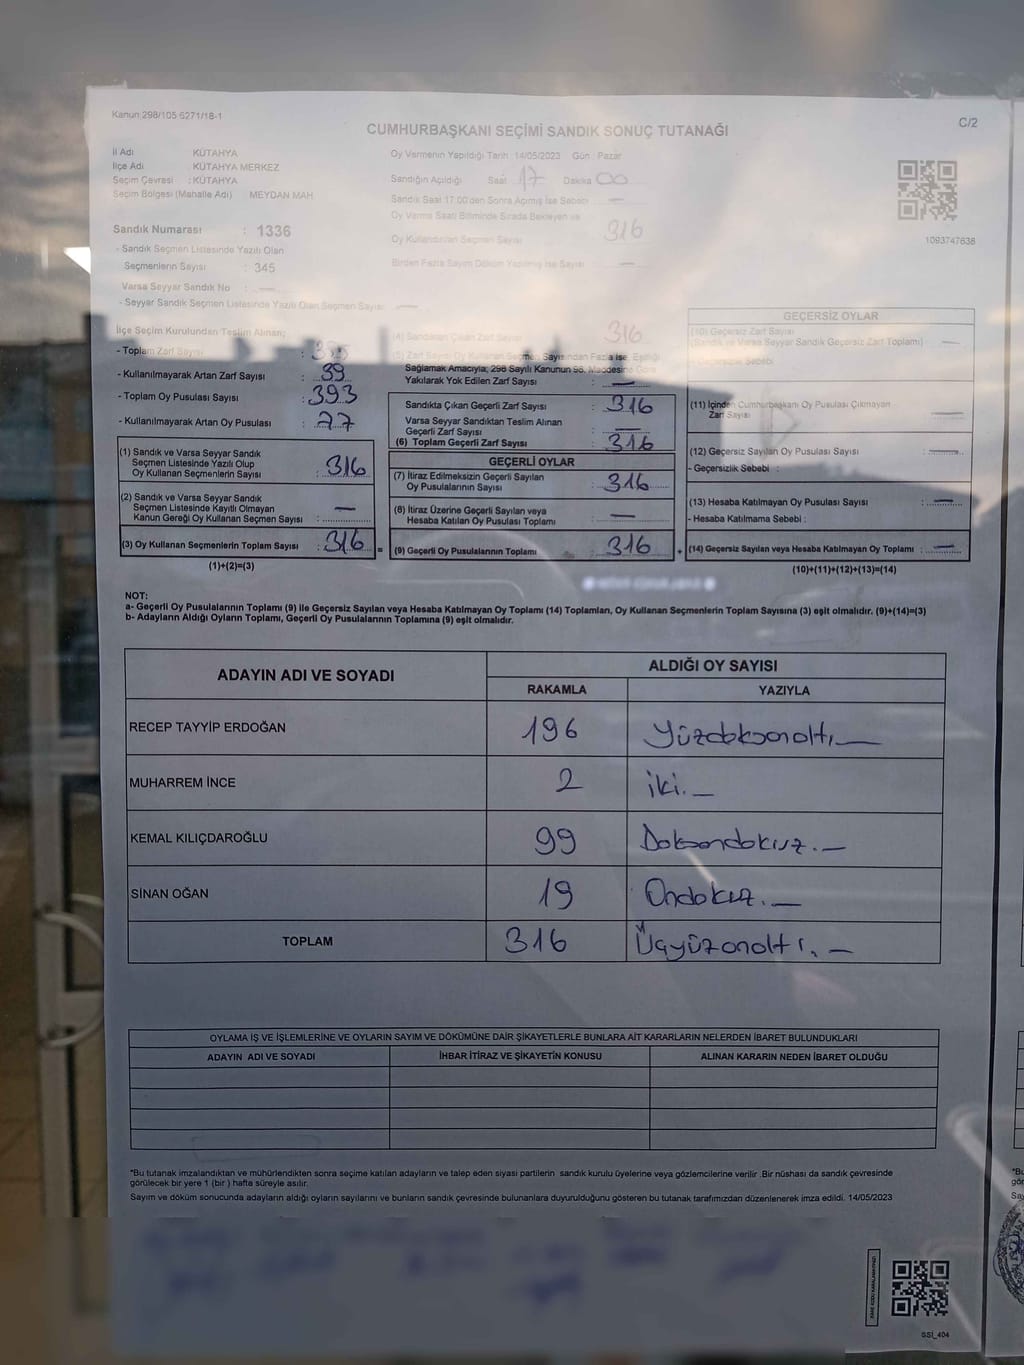 Kanun 298/105 6271/18-1
C/2
CUMHURBAŞKANI SEÇİMİ SANDIK SONUÇ TUTANAĞI
İl Adı KÜTAHYA
İlçe Adı KÜTAHYA MERKEZ
Seçim Çevresi : KÜTAHYA
Seçim Bölgesi (Mahalle Adı) MEYDAN MAH
Sandık Numarası : 1336
- Sandık Seçmen Listesinde Yazılı Olan
Seçmenlerin Sayısı : 345
Varsa Seyyar Sandık No : —
- Seyyar Sandık Seçmen Listesinde Yazılı Olan Seçmen Sayısı —
Oy Vermenin Yapıldığı Tarih 14/05/2023 Gün Pazar
Sandığın Açıldığı Saat 17 Dakika 00
Sandık Saat 17.00'den Sonra Açılmış İse Sebebi —
Oy Verme Saati Bitiminde Sırada Bekleyen ve
Oy Kullandırılan Seçmen Sayısı 316
Birden Fazla Sayım Döküm Yapılmış İse Sayısı —
1093747638
İlçe Seçim Kurulundan Teslim Alınan;
- Toplam Zarf Sayısı :
- Kullanılmayarak Artan Zarf Sayısı : 39
- Toplam Oy Pusulası Sayısı : 393
- Kullanılmayarak Artan Oy Pusulası : 77
(1) Sandık ve Varsa Seyyar Sandık
Seçmen Listesinde Yazılı Olup
Oy Kullanan Seçmenlerin Sayısı : 316
(2) Sandık ve Varsa Seyyar Sandık
Seçmen Listesinde Kayıtlı Olmayan
Kanun Gereği Oy Kullanan Seçmen Sayısı : —
(3) Oy Kullanan Seçmenlerin Toplam Sayısı : 316
(1)+(2)=(3)
=
(4) Sandıktan Çıkan Zarf Sayısı 316
(5) Zarf Sayısı Oy Kullanan Seçmen Sayısından Fazla ise, Eşitliği
Sağlamak Amacıyla; 298 Sayılı Kanunun 98. Maddesine Göre
Yakılarak Yok Edilen Zarf Sayısı : —
Sandıkta Çıkan Geçerli Zarf Sayısı : 316
Varsa Seyyar Sandıktan Teslim Alınan
Geçerli Zarf Sayısı : —
(6) Toplam Geçerli Zarf Sayısı : 316
GEÇERLİ OYLAR
(7) İtiraz Edilmeksizin Geçerli Sayılan
Oy Pusulalarının Sayısı : 316
(8) İtiraz Üzerine Geçerli Sayılan veya
Hesaba Katılan Oy Pusulası Toplamı : —
(9) Geçerli Oy Pusulalarının Toplamı : 316
+
GEÇERSİZ OYLAR
(10) Geçersiz Zarf Sayısı
(Sandık ve Varsa Seyyar Sandık Geçersiz Zarf Toplamı) —
- Geçersizlik Sebebi
(11) İçinden Cumhurbaşkanı Oy Pusulası Çıkmayan
Zarf Sayısı —
(12) Geçersiz Sayılan Oy Pusulası Sayısı : —
- Geçersizlik Sebebi :
(13) Hesaba Katılmayan Oy Pusulası Sayısı : —
- Hesaba Katılmama Sebebi :
(14) Geçersiz Sayılan veya Hesaba Katılmayan Oy Toplamı : —
(10)+(11)+(12)+(13)=(14)
NOT:
a- Geçerli Oy Pusulalarının Toplamı (9) ile Geçersiz Sayılan veya Hesaba Katılmayan Oy Toplamı (14) Toplamları, Oy Kullanan Seçmenlerin Toplam Sayısına (3) eşit olmalıdır. (9)+(14)=(3)
b- Adayların Aldığı Oyların Toplamı, Geçerli Oy Pusulalarının Toplamına (9) eşit olmalıdır.
ADAYIN ADI VE SOYADI ALDIĞI OY SAYISI
RAKAMLA YAZIYLA
RECEP TAYYİP ERDOĞAN 196 Yüzdoksanaltı.—
MUHARREM İNCE 2 iki.—
KEMAL KILIÇDAROĞLU 99 Doksandokuz.—
SİNAN OĞAN 19 Ondokuz.—
TOPLAM 316 Üçyüzonaltı.—
OYLAMA İŞ VE İŞLEMLERİNE VE OYLARIN SAYIM VE DÖKÜMÜNE DAİR ŞİKAYETLERLE BUNLARA AİT KARARLARIN NELERDEN İBARET BULUNDUKLARI
ADAYIN ADI VE SOYADI İHBAR İTİRAZ VE ŞİKAYETİN KONUSU ALINAN KARARIN NEDEN İBARET OLDUĞU
"Bu tutanak imzalandıktan ve mühürlendikten sonra seçime katılan adayların ve talep eden siyasi partilerin sandık kurulu üyelerine veya gözlemcilerine verilir. Bir nüshası da sandık çevresinde
görülecek bir yere 1 (bir) hafta süreyle asılır.
Sayım ve döküm sonucunda adayların aldığı oyların sayılarını ve bunların sandık çevresinde bulunanlara duyurulduğunu gösteren bu tutanak tarafımızdan düzenlenerek imza edildi. 14/05/2023
SSİ_404